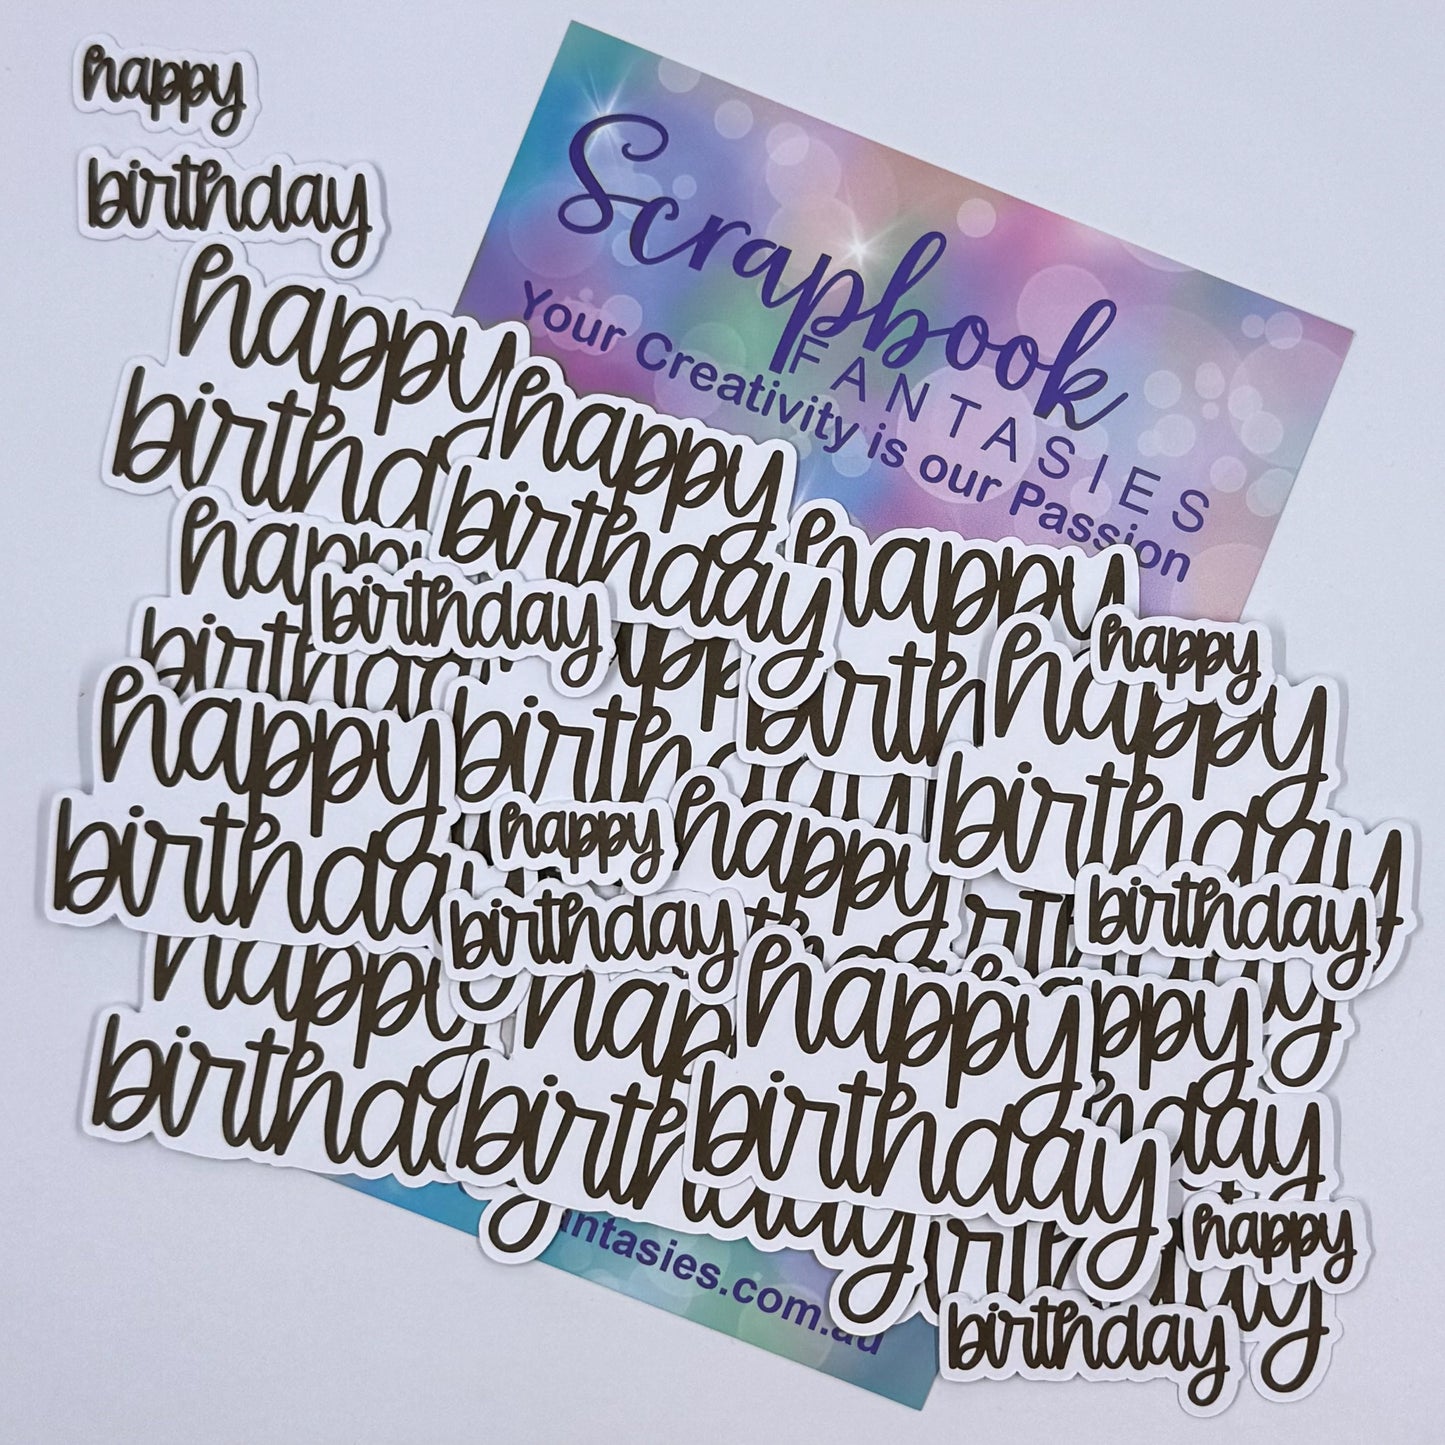 happy
birthday
Scrapbook
FANTASIES
Your Creativity is our Passion
happy
birthda
happy
birthday
happy
birth
happy
birthday
happy
birthda
birthday
happy
birthday
happy
birthday
birth
happy
happy
birthday
birthday
happy
birthda
happy
birthday
happy
birthday
ppy
day
happy
birthday
antasies.com.au